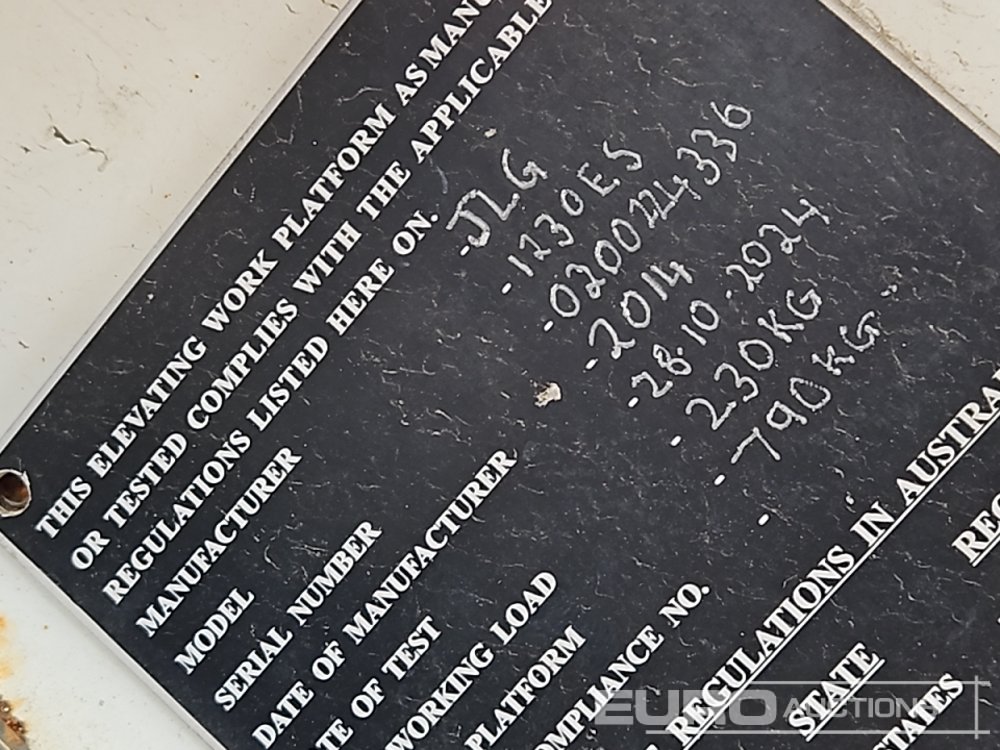 THIS ELEVATING WORK PLATFORM AS
OR TESTED COMPLIES WITH THE APPLICABLE
REGULATIONS LISTED HERE ON.
MANUFACTURER - JLG
MODEL - 1230ES
SERIAL NUMBER
DATE OF MANUFACTURER - 2014
OF TEST - 28.10.2024
WORKING LOAD - 230KG
PLATFORM - 790KG
NO. -
REGULATIONS IN
STATE
EURO AUCTIONS